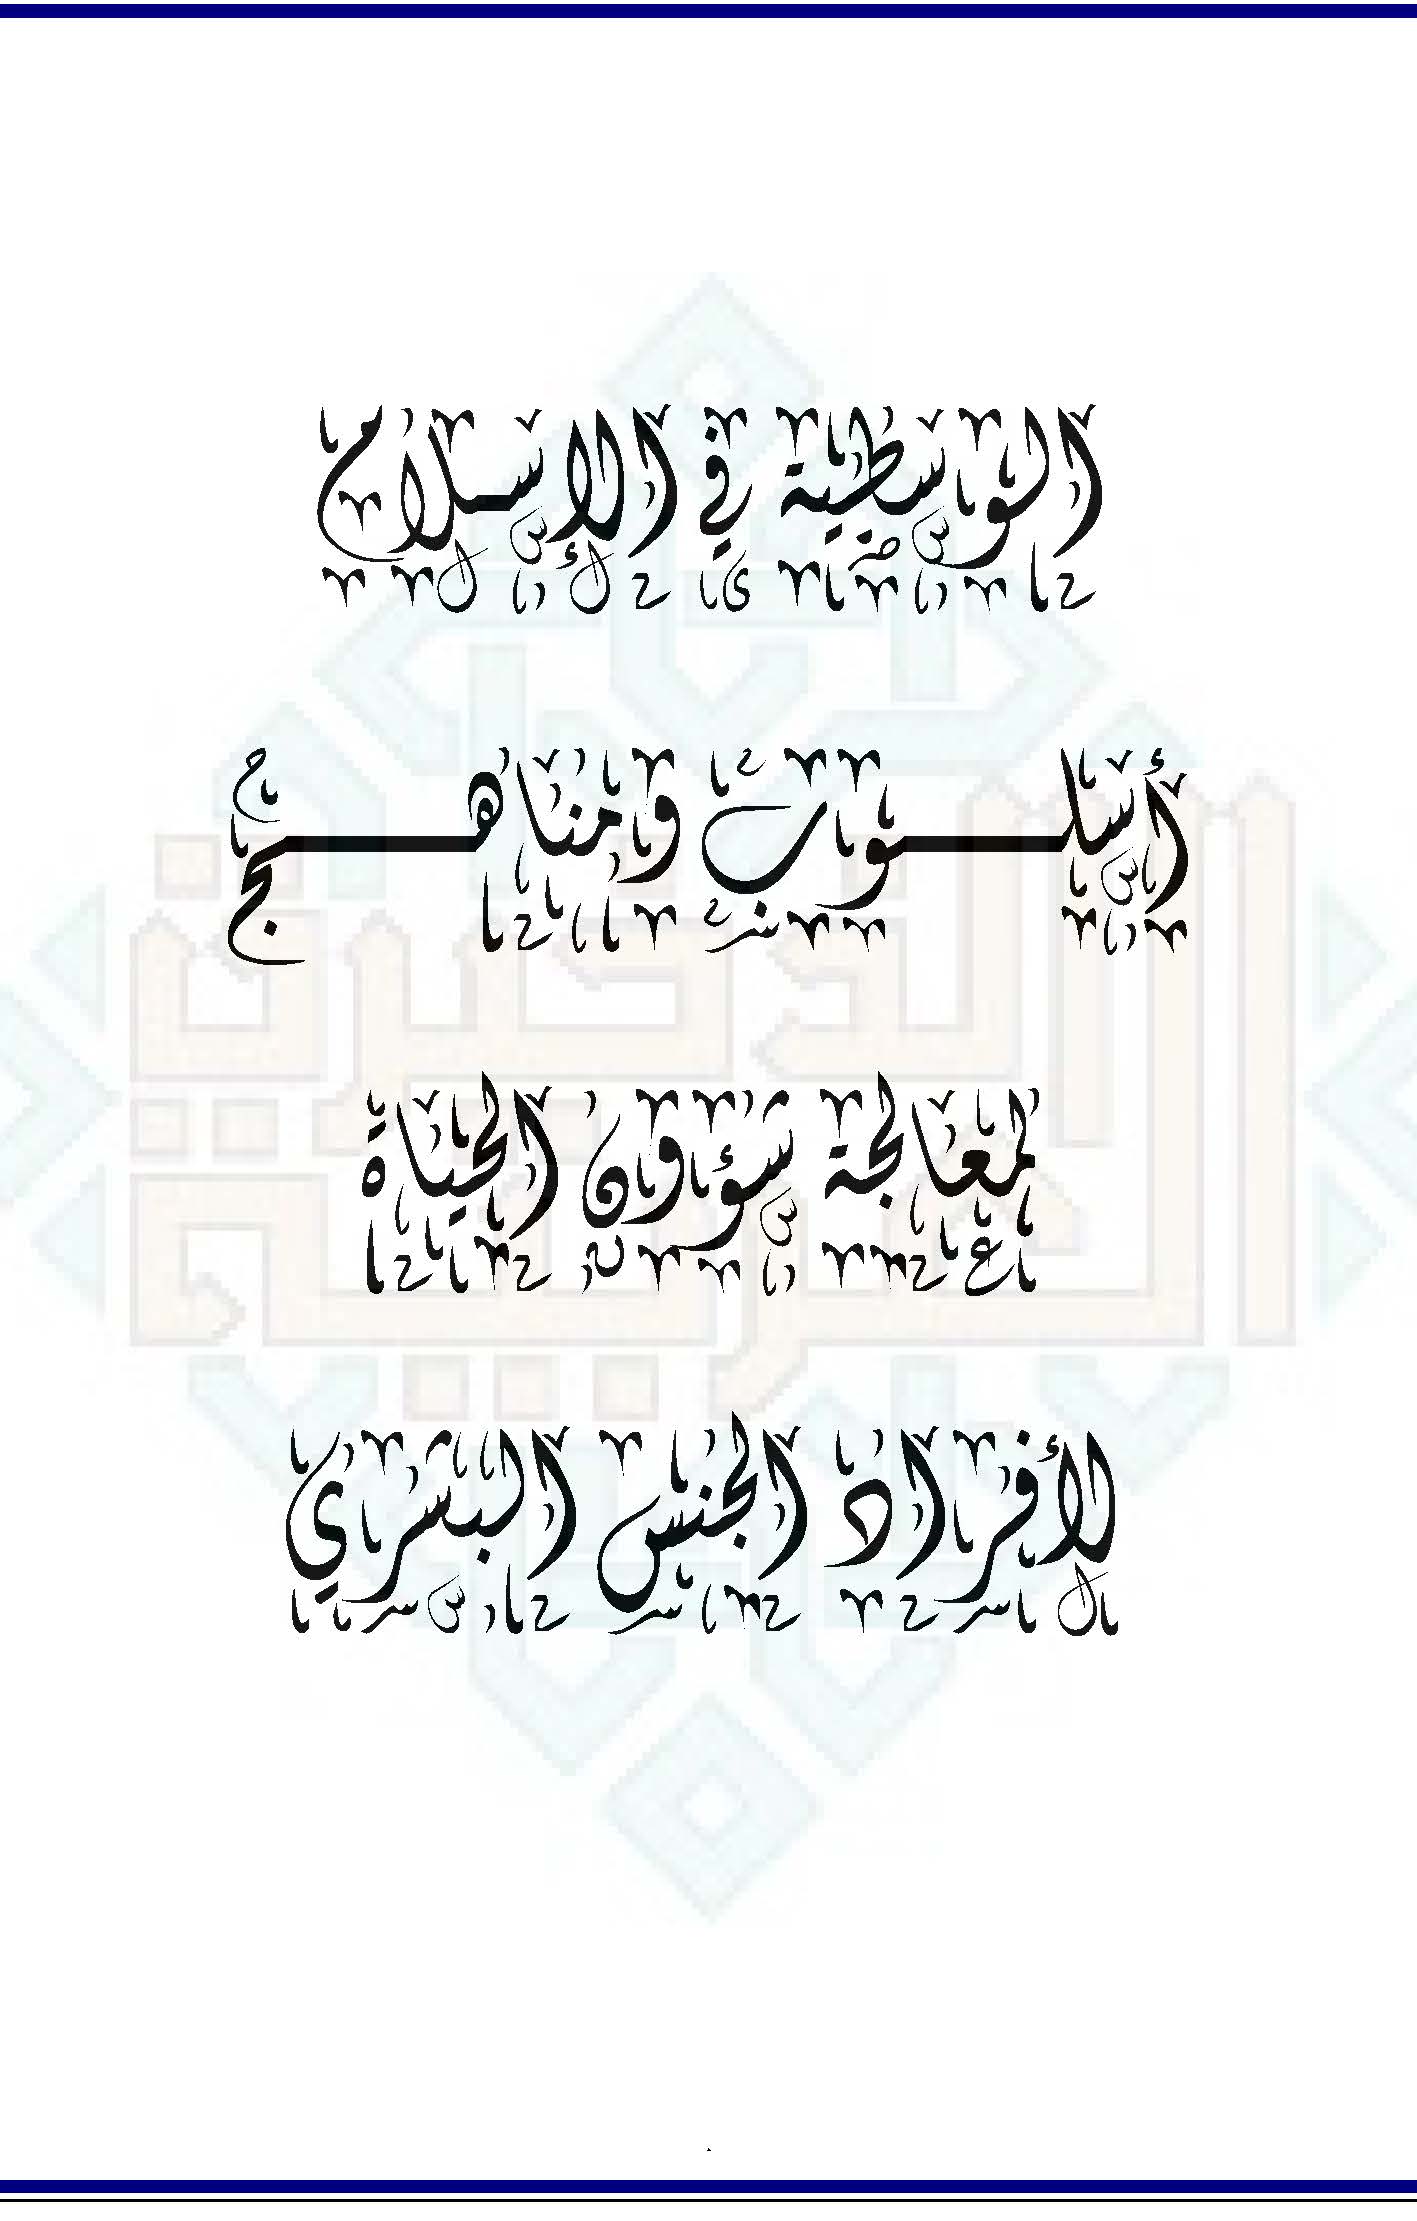 الوسطية في الإسلام
أسلوب ومناهج
لمعالجة شؤون الحياة
لأفراد الجنس البشري